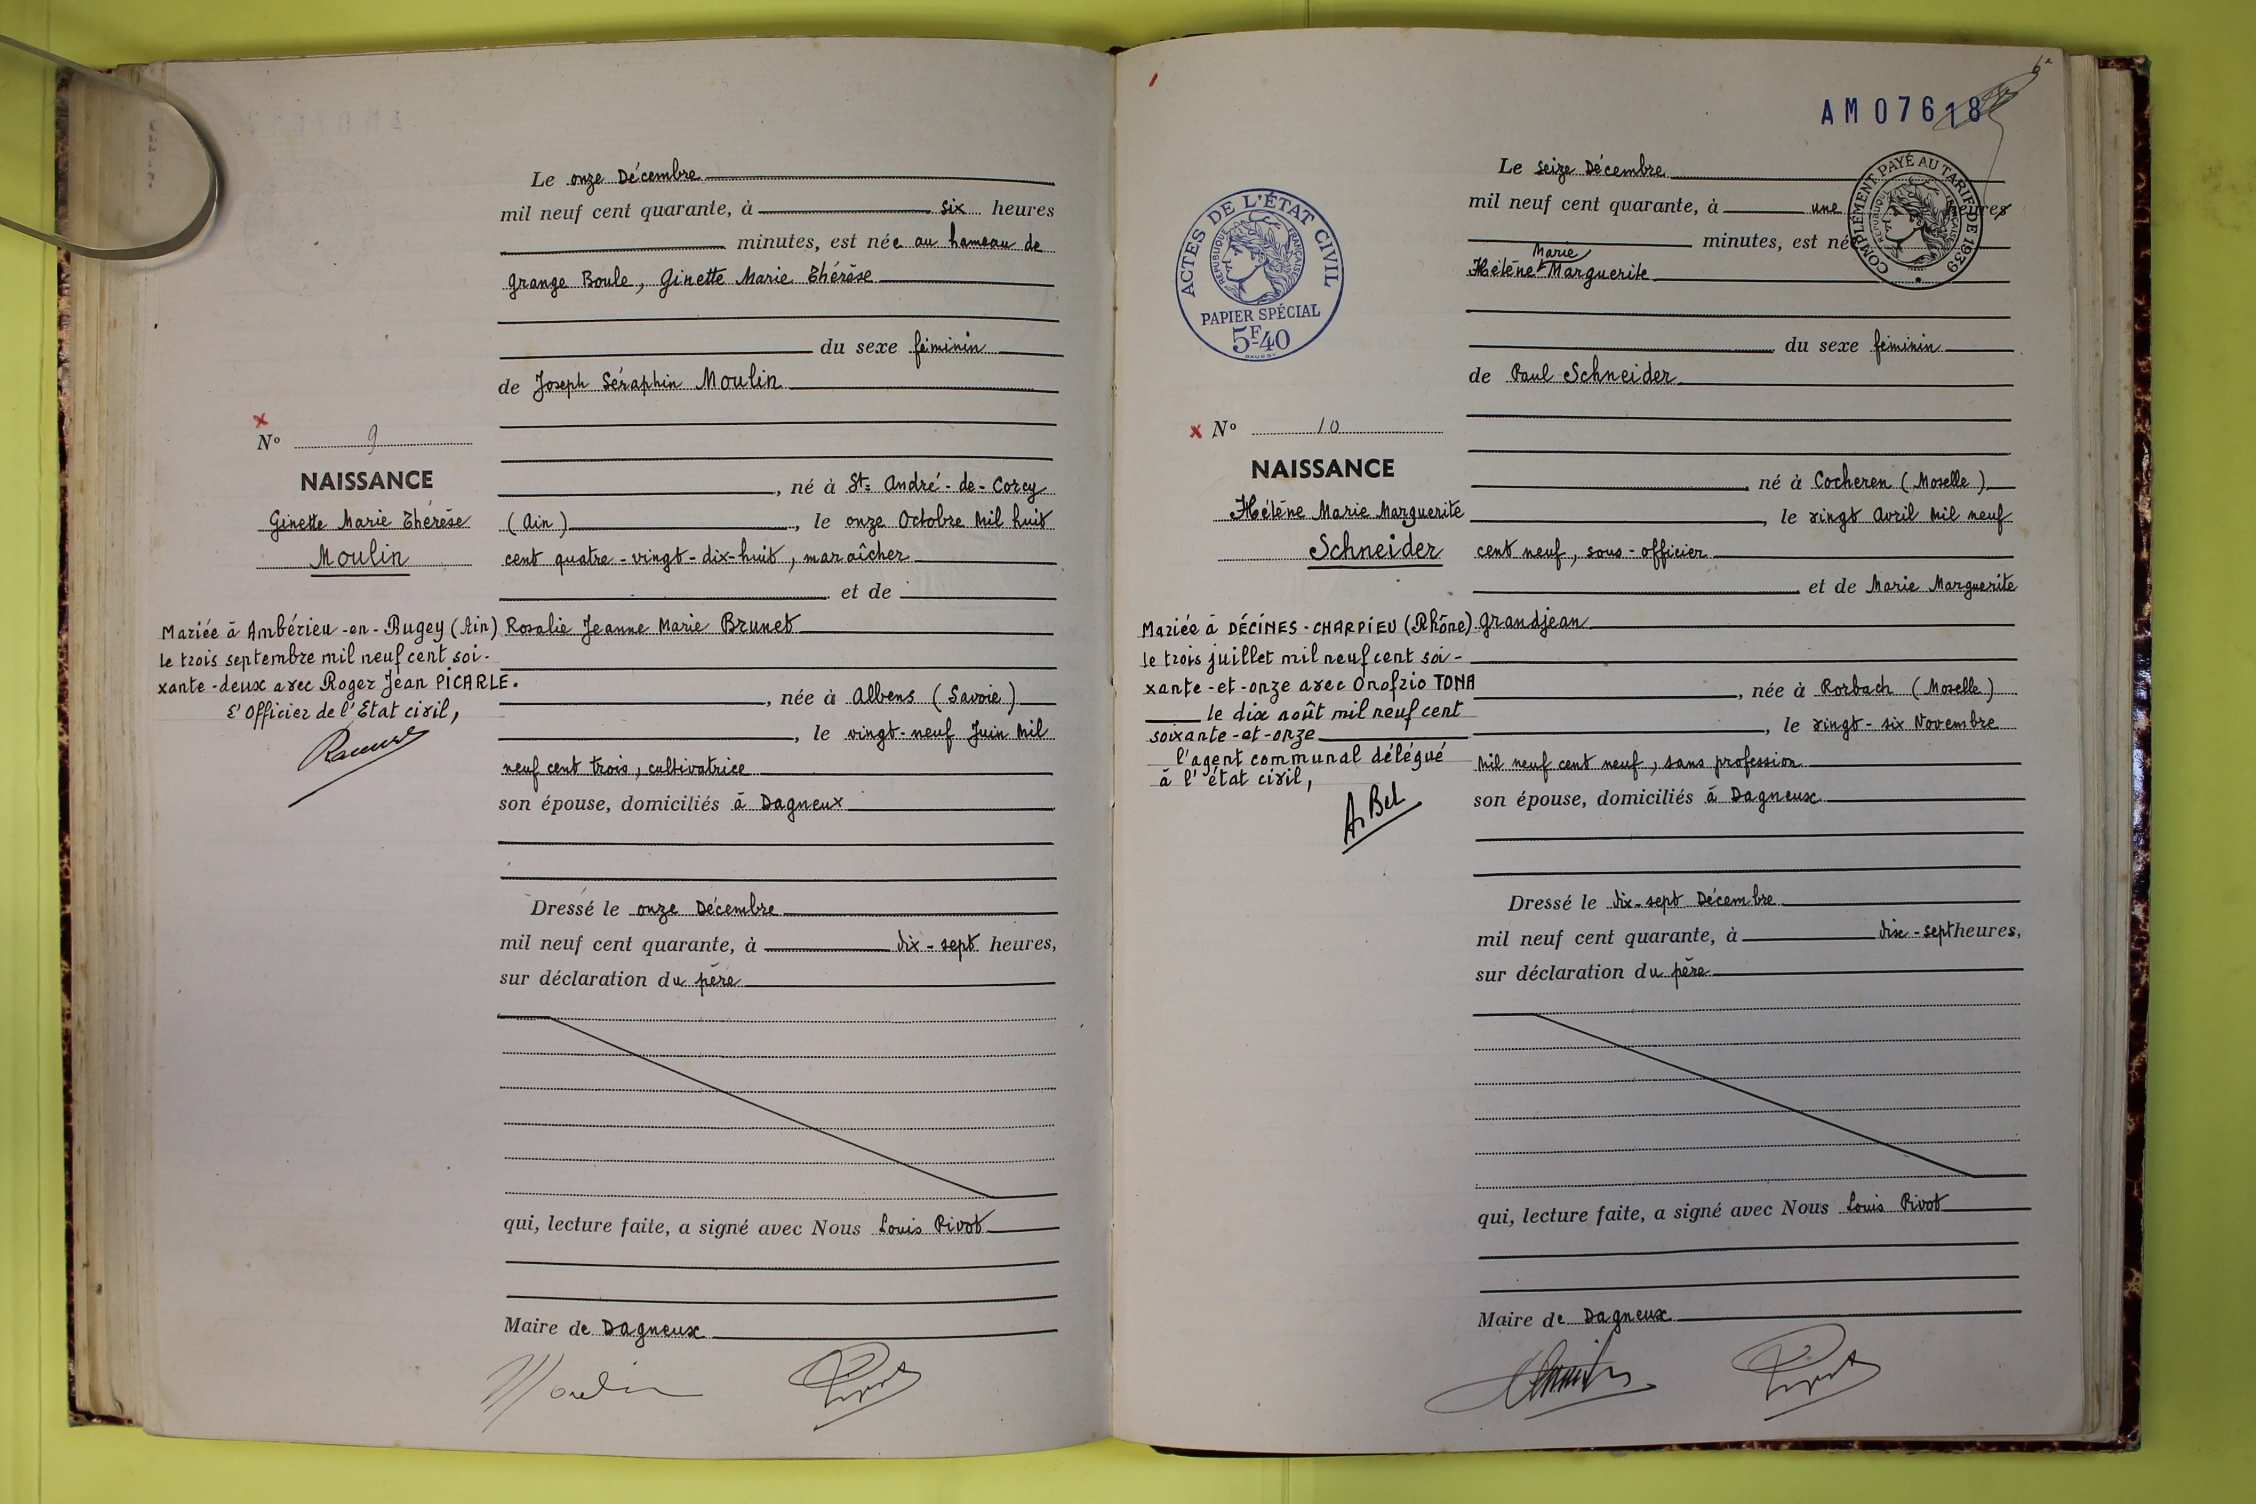 Le onze Décembre
mil neuf cent quarante, à six heures
minutes, est née au hameau de
Grange Boule, Ginette Marie Thérèse
du sexe féminin
de Joseph Séraphin Moulin
Nº 9
NAISSANCE
Ginette Marie Thérèse
Moulin
, né à St= André-de-Corcy
(Ain), le onze Octobre Mil huit
cent quatre-vingt-dix-huit, maraîcher
et de
Rosalie Jeanne Marie Brunet
, née à Albens (Savoie)
, le vingt-neuf Juin Mil
neuf cent trois, cultivatrice
son épouse, domiciliés à Dagneux
Mariée à Ambérieu-en-Bugey (Ain)
le trois septembre mil neuf cent soi-
xante-deux avec Roger Jean PICARLE.
L'Officier de l'Etat civil,
Dressé le onze Décembre
mil neuf cent quarante, à dix-sept heures,
sur déclaration du père
qui, lecture faite, a signé avec Nous Louis Pivot
Maire de Dagneux
Moulin Pivot
AM07618
Le seize Décembre
mil neuf cent quarante, à une eures
minutes, est né
Marie
Hélène Marguerite
COMPLÉMENT PAYÉ AU TARIF DE 1939
RÉPUBLIQUE FRANÇAISE
ACTES DE L'ÉTAT CIVIL
RÉPUBLIQUE FRANÇAISE
PAPIER SPÉCIAL
5F40
du sexe féminin
de Paul Schneider
Nº 10
NAISSANCE
Hélène Marie Marguerite
Schneider
né à Cocheren (Moselle)
, le vingt Avril Mil neuf
cent neuf, sous-officier
et de Marie Marguerite
Grandjean
, née à Rorbach (Moselle)
, le vingt-six Novembre
Mil neuf cent neuf, sans profession
son épouse, domiciliés à Dagneux
Mariée à DÉCINES-CHARPIEU (Rhône)
le trois juillet mil neuf cent soi-
xante-et-onze avec Onofrio TONA
le dix août mil neuf cent
soixante-et-onze
l'agent communal délégué
à l'état civil,
A. Bel
Dressé le dix-sept Décembre
mil neuf cent quarante, à dix-sept heures,
sur déclaration du père
qui, lecture faite, a signé avec Nous Louis Pivot
Maire de Dagneux
Pivot